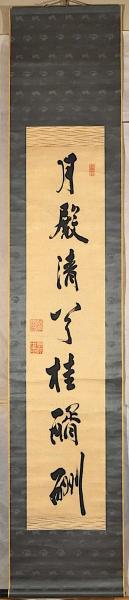 月殿清兮桂醑酬